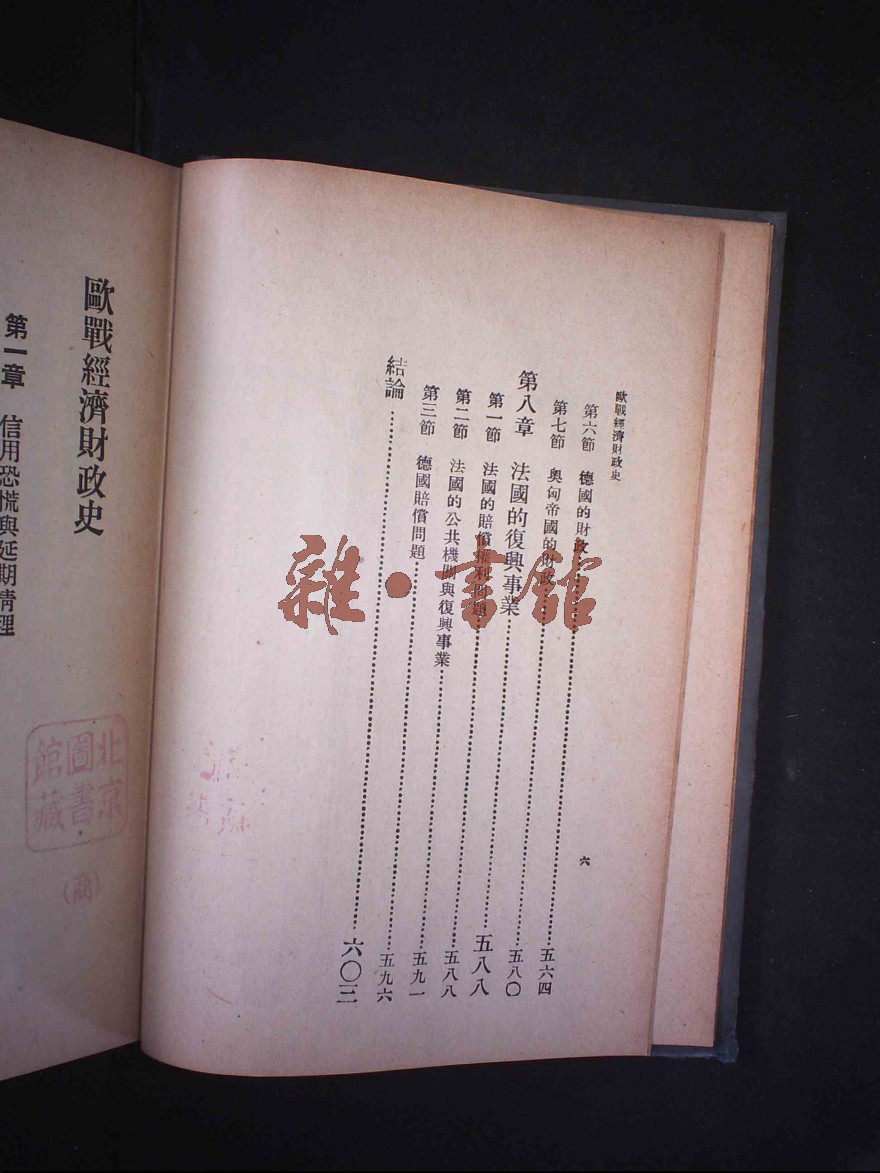 歐戰經濟財政史
六
第六節 德國的財政……五六四
第七節 奧匈帝國的財政……五八〇
第八章 法國的復興事業……五八八
第一節 法國的賠償權利問題……五八八
第二節 法國的公共機關與復興事業……五九一
第三節 德國賠償問題……五九六
結論……六〇三
歐戰經濟財政史
第一章 信用恐慌與延期清理
北京
圖書
館藏
(商)
雜·書館